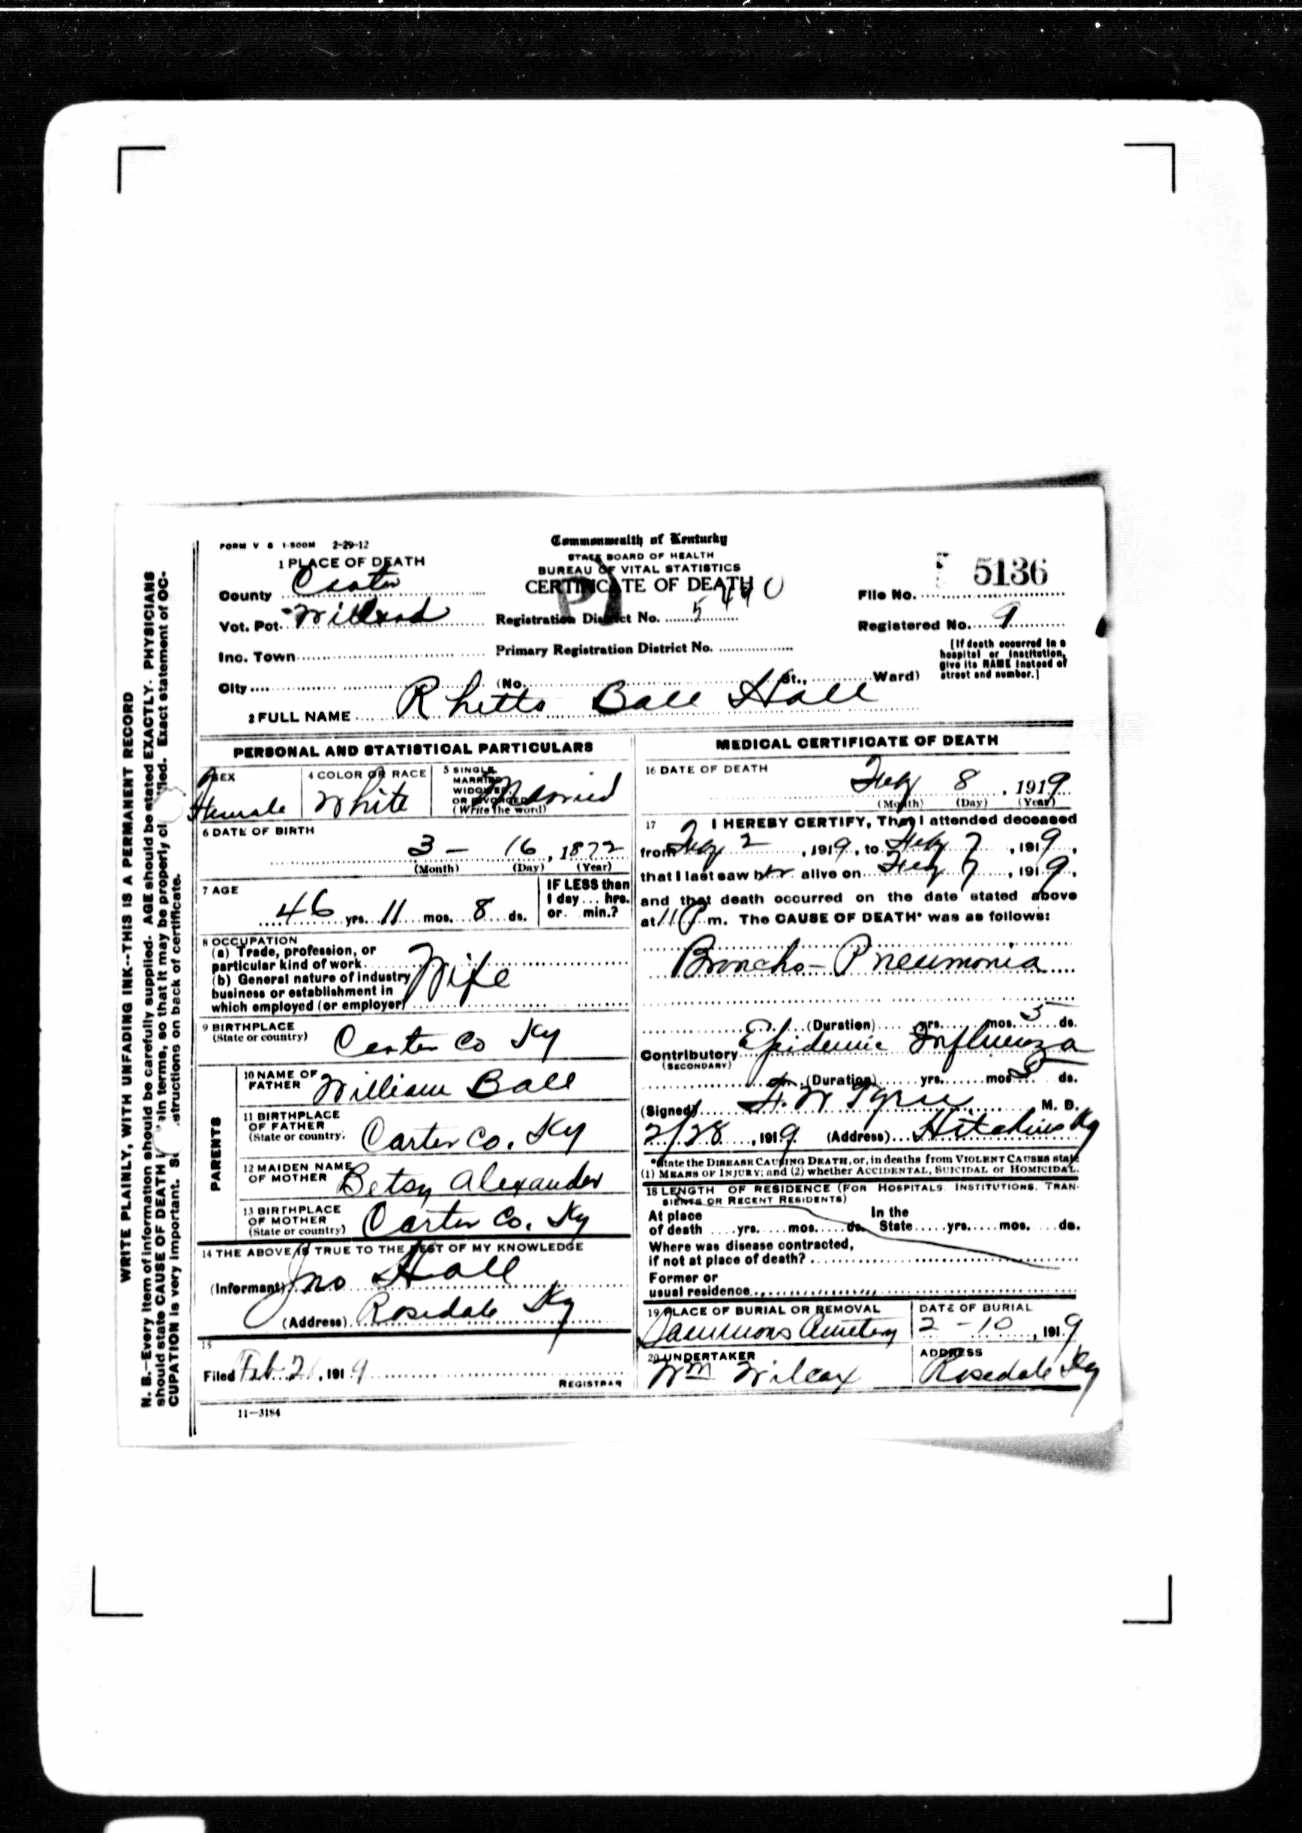 FORM V S 1-500M 2-29-12
Commonwealth of Kentucky
STATE BOARD OF HEALTH
BUREAU OF VITAL STATISTICS
CERTIFICATE OF DEATH
1 PLACE OF DEATH
County Carter
Vot. Pct. Willard
Inc. Town
City
Registration District No. 5440
Primary Registration District No.
(No. St., Ward)
File No. 5136
Registered No. 9
[If death occurred in a hospital or institution, give its NAME instead of street and number.]
2 FULL NAME Rhetta Ball Hall
PERSONAL AND STATISTICAL PARTICULARS
SEX Female
4 COLOR OR RACE White
5 SINGLE MARRIED WIDOWED OR DIVORCED (Write the word) Married
6 DATE OF BIRTH
3 - 16, 1872
(Month) (Day) (Year)
7 AGE
46 yrs. 11 mos. 8 ds.
IF LESS than 1 day ... hrs. or min.?
8 OCCUPATION
(a) Trade, profession, or
particular kind of work
(b) General nature of industry
business or establishment in
which employed (or employer)
Wife
9 BIRTHPLACE
(State or country) Carter Co Ky
PARENTS
10 NAME OF FATHER William Ball
11 BIRTHPLACE OF FATHER (State or country) Carter Co. Ky
12 MAIDEN NAME OF MOTHER Betsy Alexander
13 BIRTHPLACE OF MOTHER (State or country) Carter Co. Ky
14 THE ABOVE IS TRUE TO THE BEST OF MY KNOWLEDGE
(Informant) Jno Hall
(Address) Rosedale Ky
15
Filed Feb 2, 1919
REGISTRAR
11-3184
MEDICAL CERTIFICATE OF DEATH
16 DATE OF DEATH
Feby 8, 1919
(Month) (Day) (Year)
17 I HEREBY CERTIFY, That I attended deceased
from Feby 2, 1919, to Feby 7, 1919,
that I last saw her alive on Feby 7, 1919,
and that death occurred on the date stated above
at 11 P m. The CAUSE OF DEATH* was as follows:
Broncho-Pneumonia
(Duration) yrs. mos. 5 ds.
Contributory Epidemic Influenza
(SECONDARY)
(Duration) yrs. mos. 5 ds.
(Signed) M. D.
2/28, 1919 (Address) Hitchins Ky
*State the DISEASE CAUSING DEATH, or, in deaths from VIOLENT CAUSES state
(1) MEANS OF INJURY; and (2) whether ACCIDENTAL, SUICIDAL or HOMICIDAL.
18 LENGTH OF RESIDENCE (FOR HOSPITALS, INSTITUTIONS, TRAN-
SIENTS OR RECENT RESIDENTS)
At place of death yrs. mos. ds. In the State yrs. mos. ds.
Where was disease contracted,
if not at place of death?
Former or
usual residence
19 PLACE OF BURIAL OR REMOVAL
Sammons Cemetery
DATE OF BURIAL
2-10, 1919
20 UNDERTAKER
Wm Wilcox
ADDRESS
Rosedale Ky
WRITE PLAINLY, WITH UNFADING INK--THIS IS A PERMANENT RECORD
N. B.--Every item of information should be carefully supplied. AGE should be stated EXACTLY. PHYSICIANS
should state CAUSE OF DEATH in terms, so that it may be properly classified. Exact statement of OC-
CUPATION is very important. structions on back of certificate.